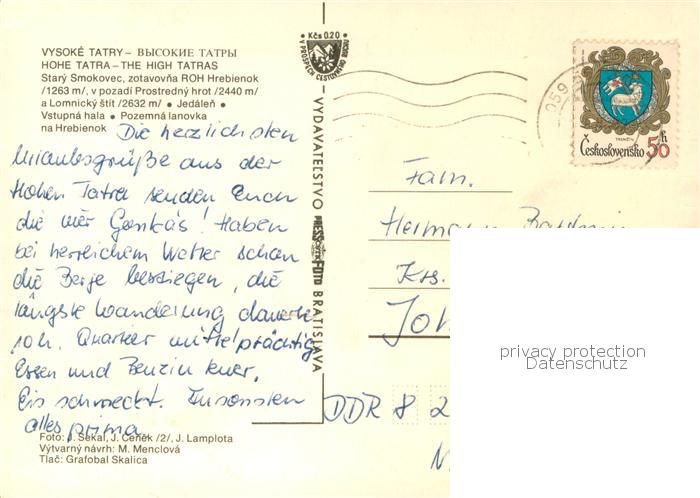 VYSOKÉ TATRY – ВЫСОКИЕ ТАТРЫ
HOHE TATRA – THE HIGH TATRAS
Starý Smokovec, zotavovňa ROH Hrebienok
/1263 m/, v pozadí Prostredný hrot /2440 m/
a Lomnický štít /2632 m/ • Jedáleň •
Vstupná hala • Pozemná lanovka
na Hrebienok
Die herzlichsten
Urlaubsgrüße aus der
Hohen Tatra senden Euch
die vier! Haben
bei herrlichem Wetter schon
die Berge bestiegen, die
längste Wanderung dauerte
10 h. Quartier mittelprächtig
Essen und Benzin teuer,
Eis schmeckt. Ansonsten
alles prima.
Foto: J. Sekal, J. Čeněk /2/, J. Lamplota
Výtvarný návrh: M. Menclová
Tlač: Grafobal Skalica
Kčs 0.20
V PROSPECH CESTOVNÉHO RUCHU
VYDAVATEĽSTVO PRESSFOTO BRATISLAVA
059
TRENČÍN
Československo 50 h
Fam.
Hermann
Krs.
DDR 8 2
privacy protection
Datenschutz